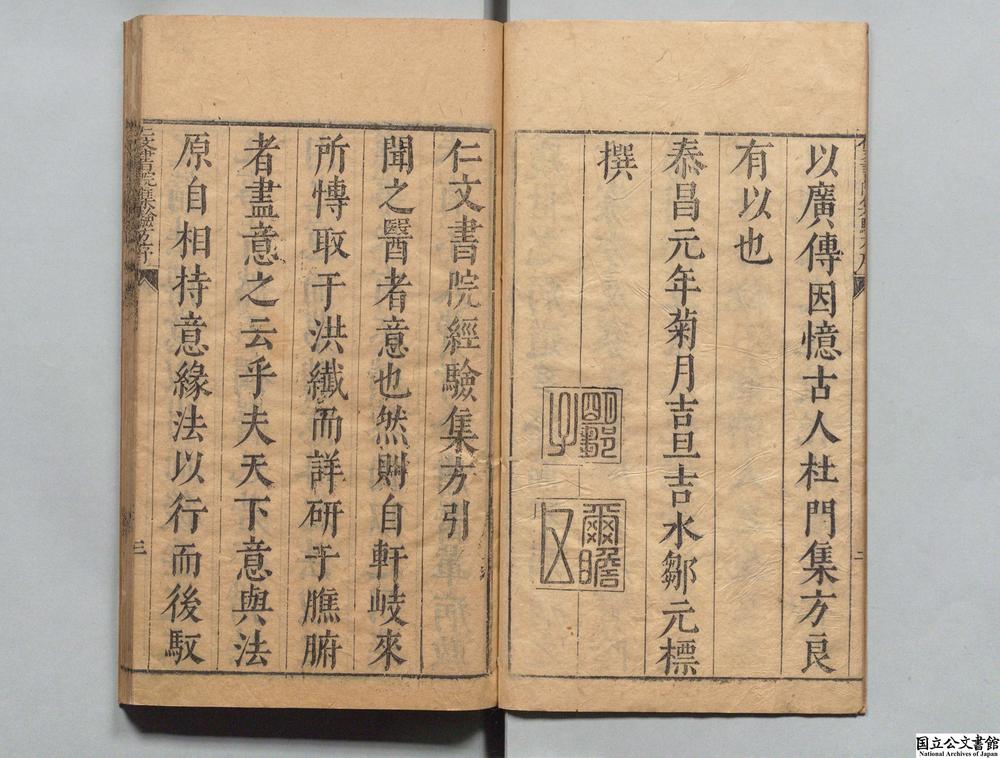 以廣傳因憶古人杜門集方良
有以也
泰昌元年菊月吉旦吉水鄒元標
撰
爾瞻
二
仁文書院經驗集方引
聞之醫者意也然則自軒岐來
所傳取于洪纖而詳研于臕腑
者盡意之云乎夫天下意與法
原自相持意緣法以行而後馭
三
国立公文書館
National Archives of Japan